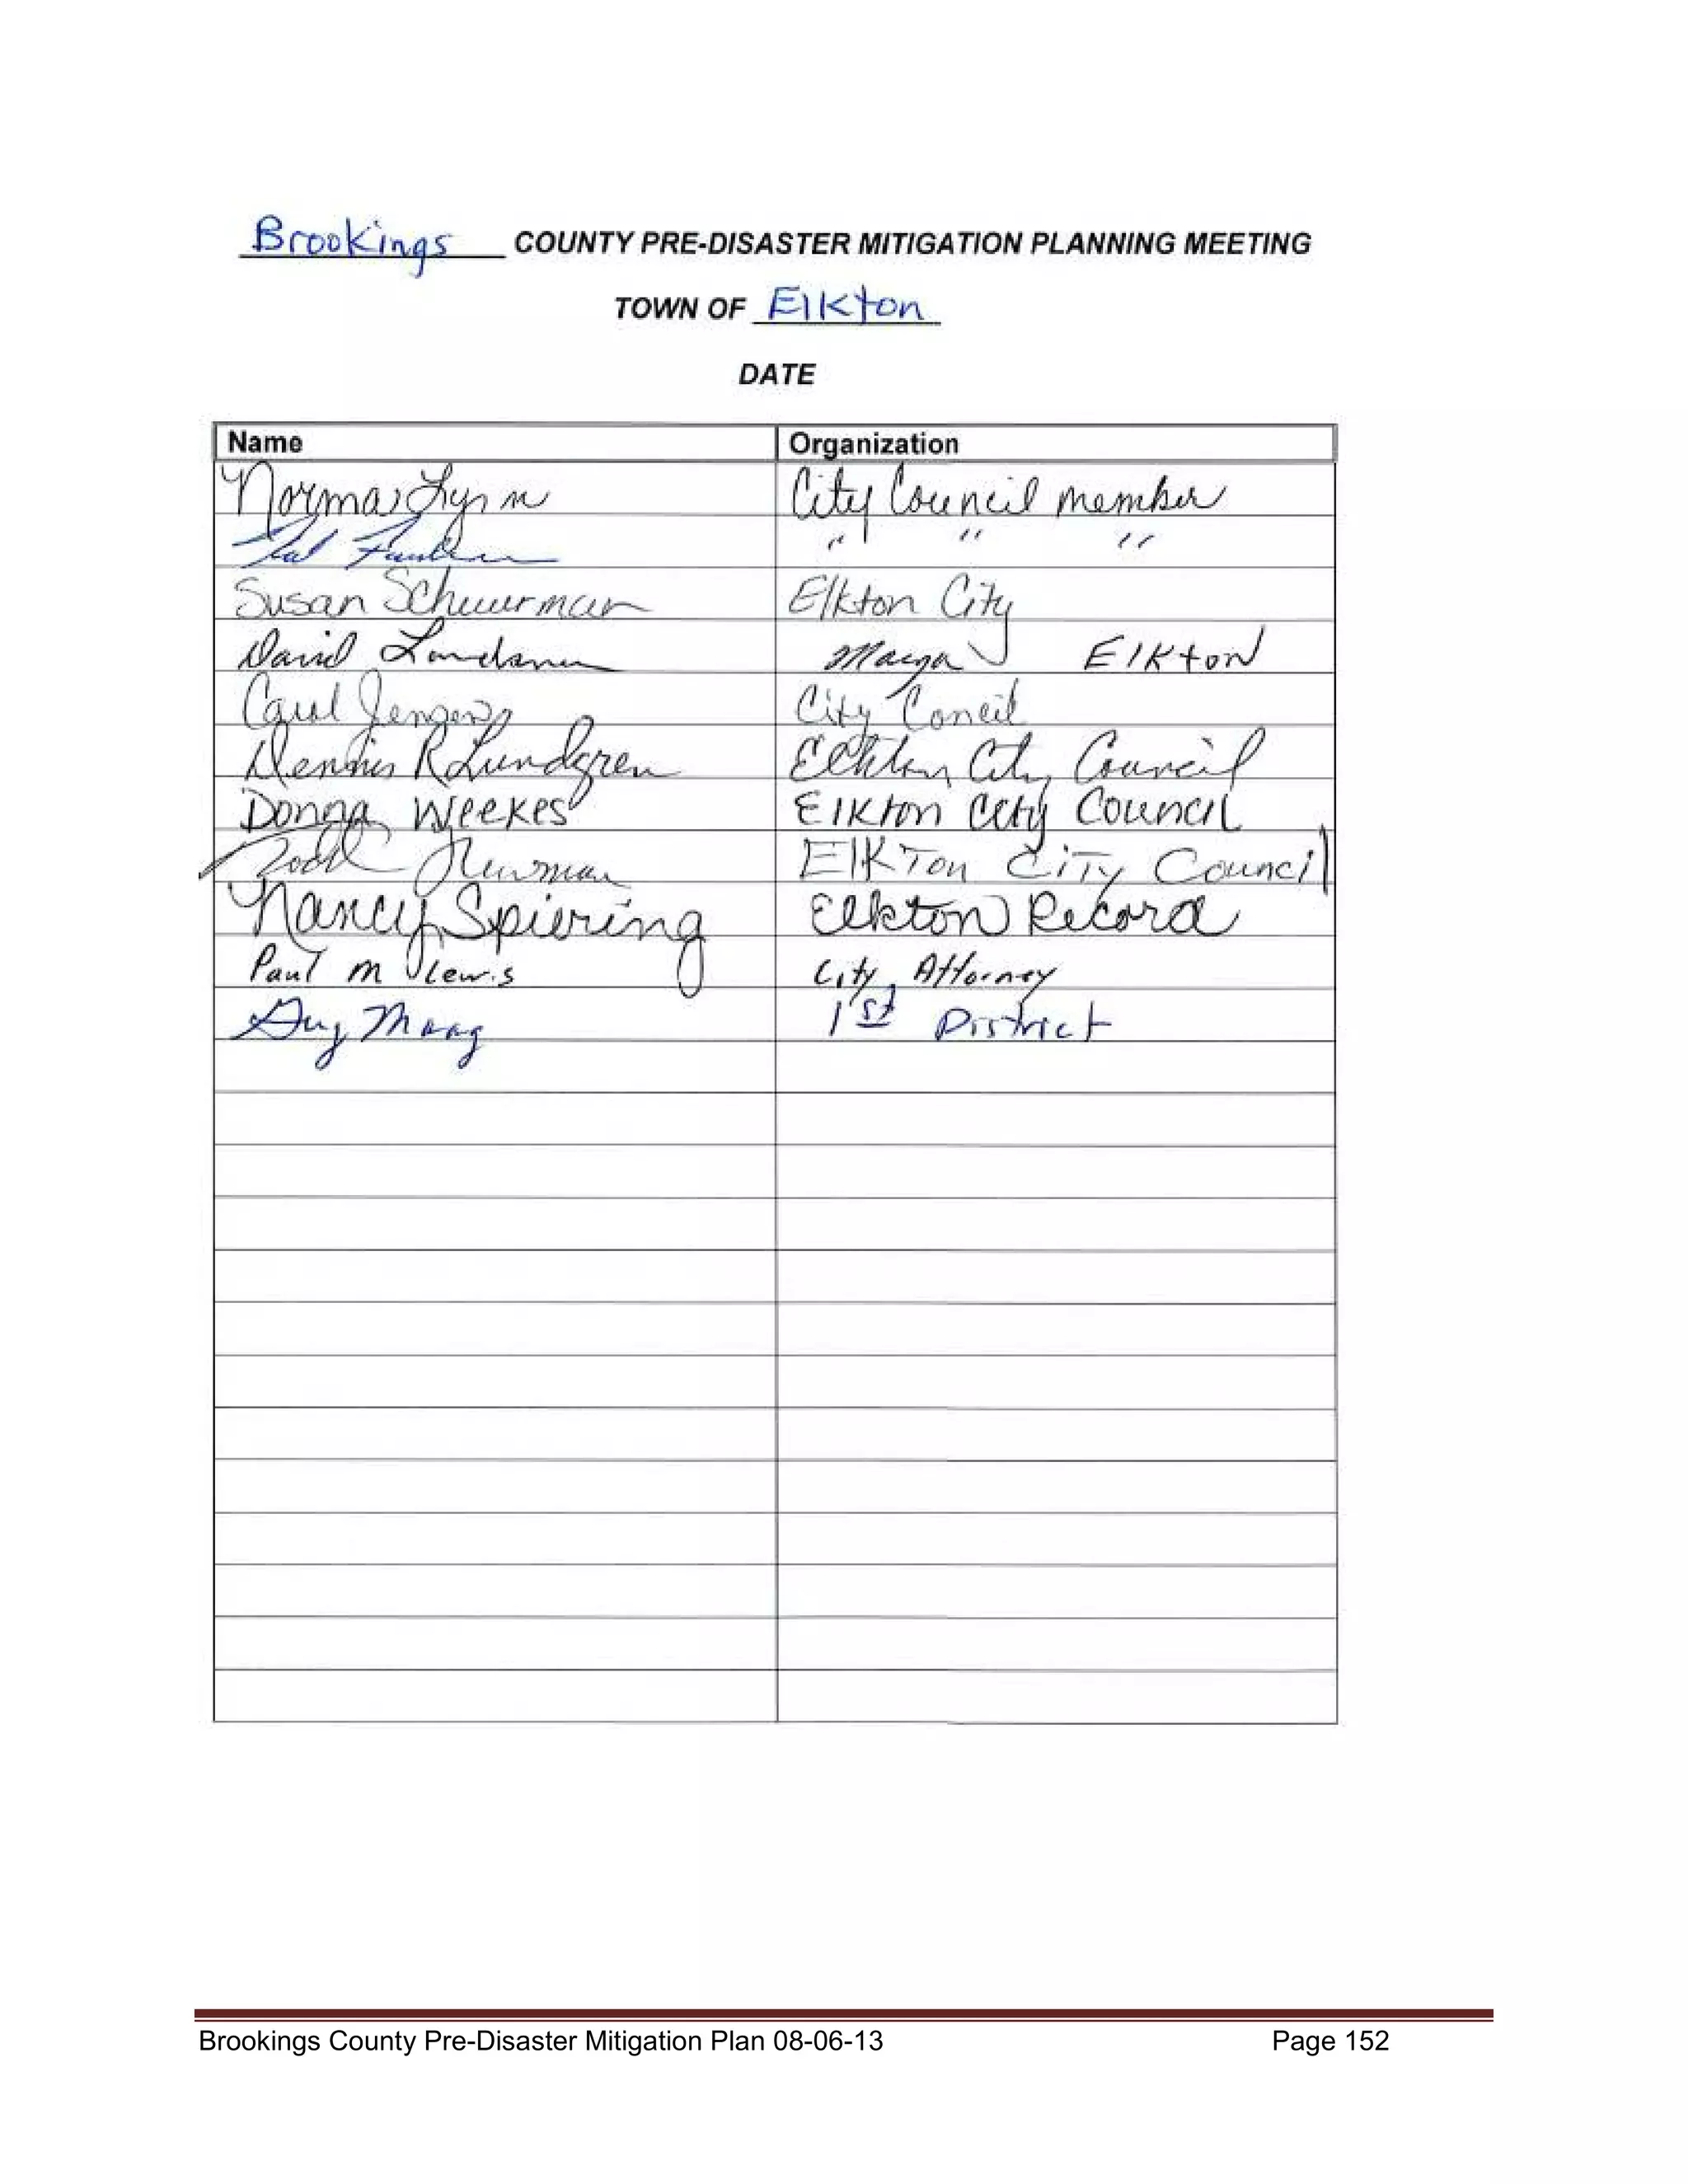 Brookings COUNTY PRE-DISASTER MITIGATION PLANNING MEETING
TOWN OF Elkton
DATE
Name Organization
Norma Lynn City Council member
" " "
Susan Scheurman Elkton City
David Mayor Elkton
Carol Jensen City Concil
Dennis R Lundgren Elkton City Council
Donna Weekes Elkton City Council
Todd Newman Elkton City Council
Nancy Spiering Elkton Record
Paul M Lewis City Attorney
Maag 1st District
Brookings County Pre-Disaster Mitigation Plan 08-06-13 Page 152